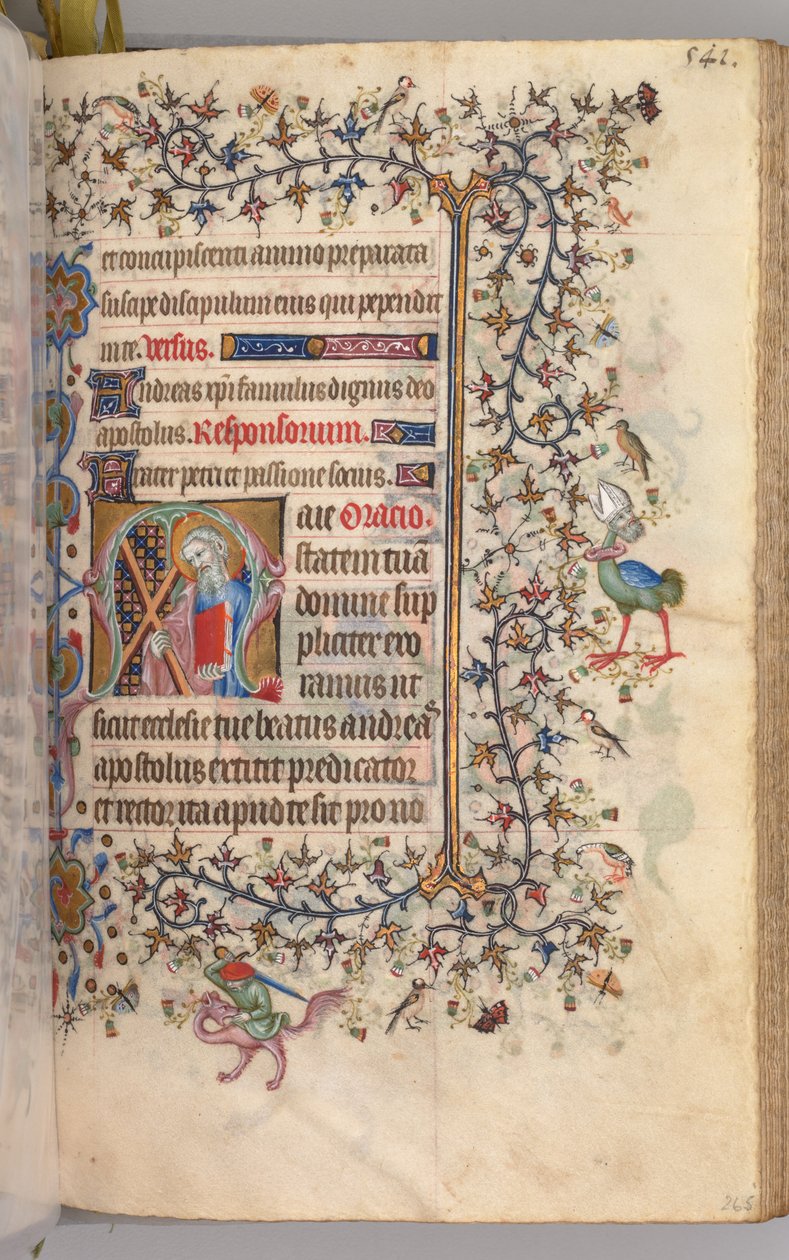 542.
et concupiscenti animo preparata
suscipe discipulum eius qui pependit
in te. Versus.
Andreas xpi famulus dignus deo
apostolus. Responsorium.
Frater petri et passione socius.
aie Oracio.
Maiestatem tuā
domine sup
pliciter exo
ramus ut
sicut ecclesie tue beatus andreas
apostolus extitit predicator
et rector ita apud te sit pro no
265